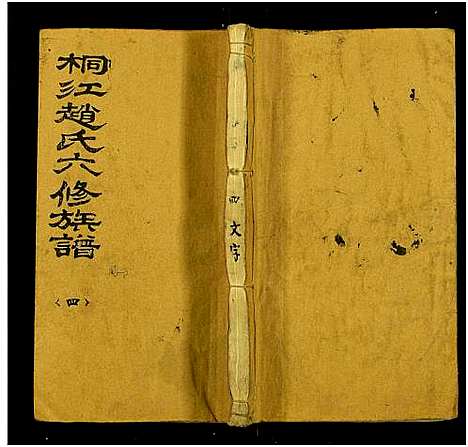 桐江趙氏六修族譜
〈四〉
四 文字